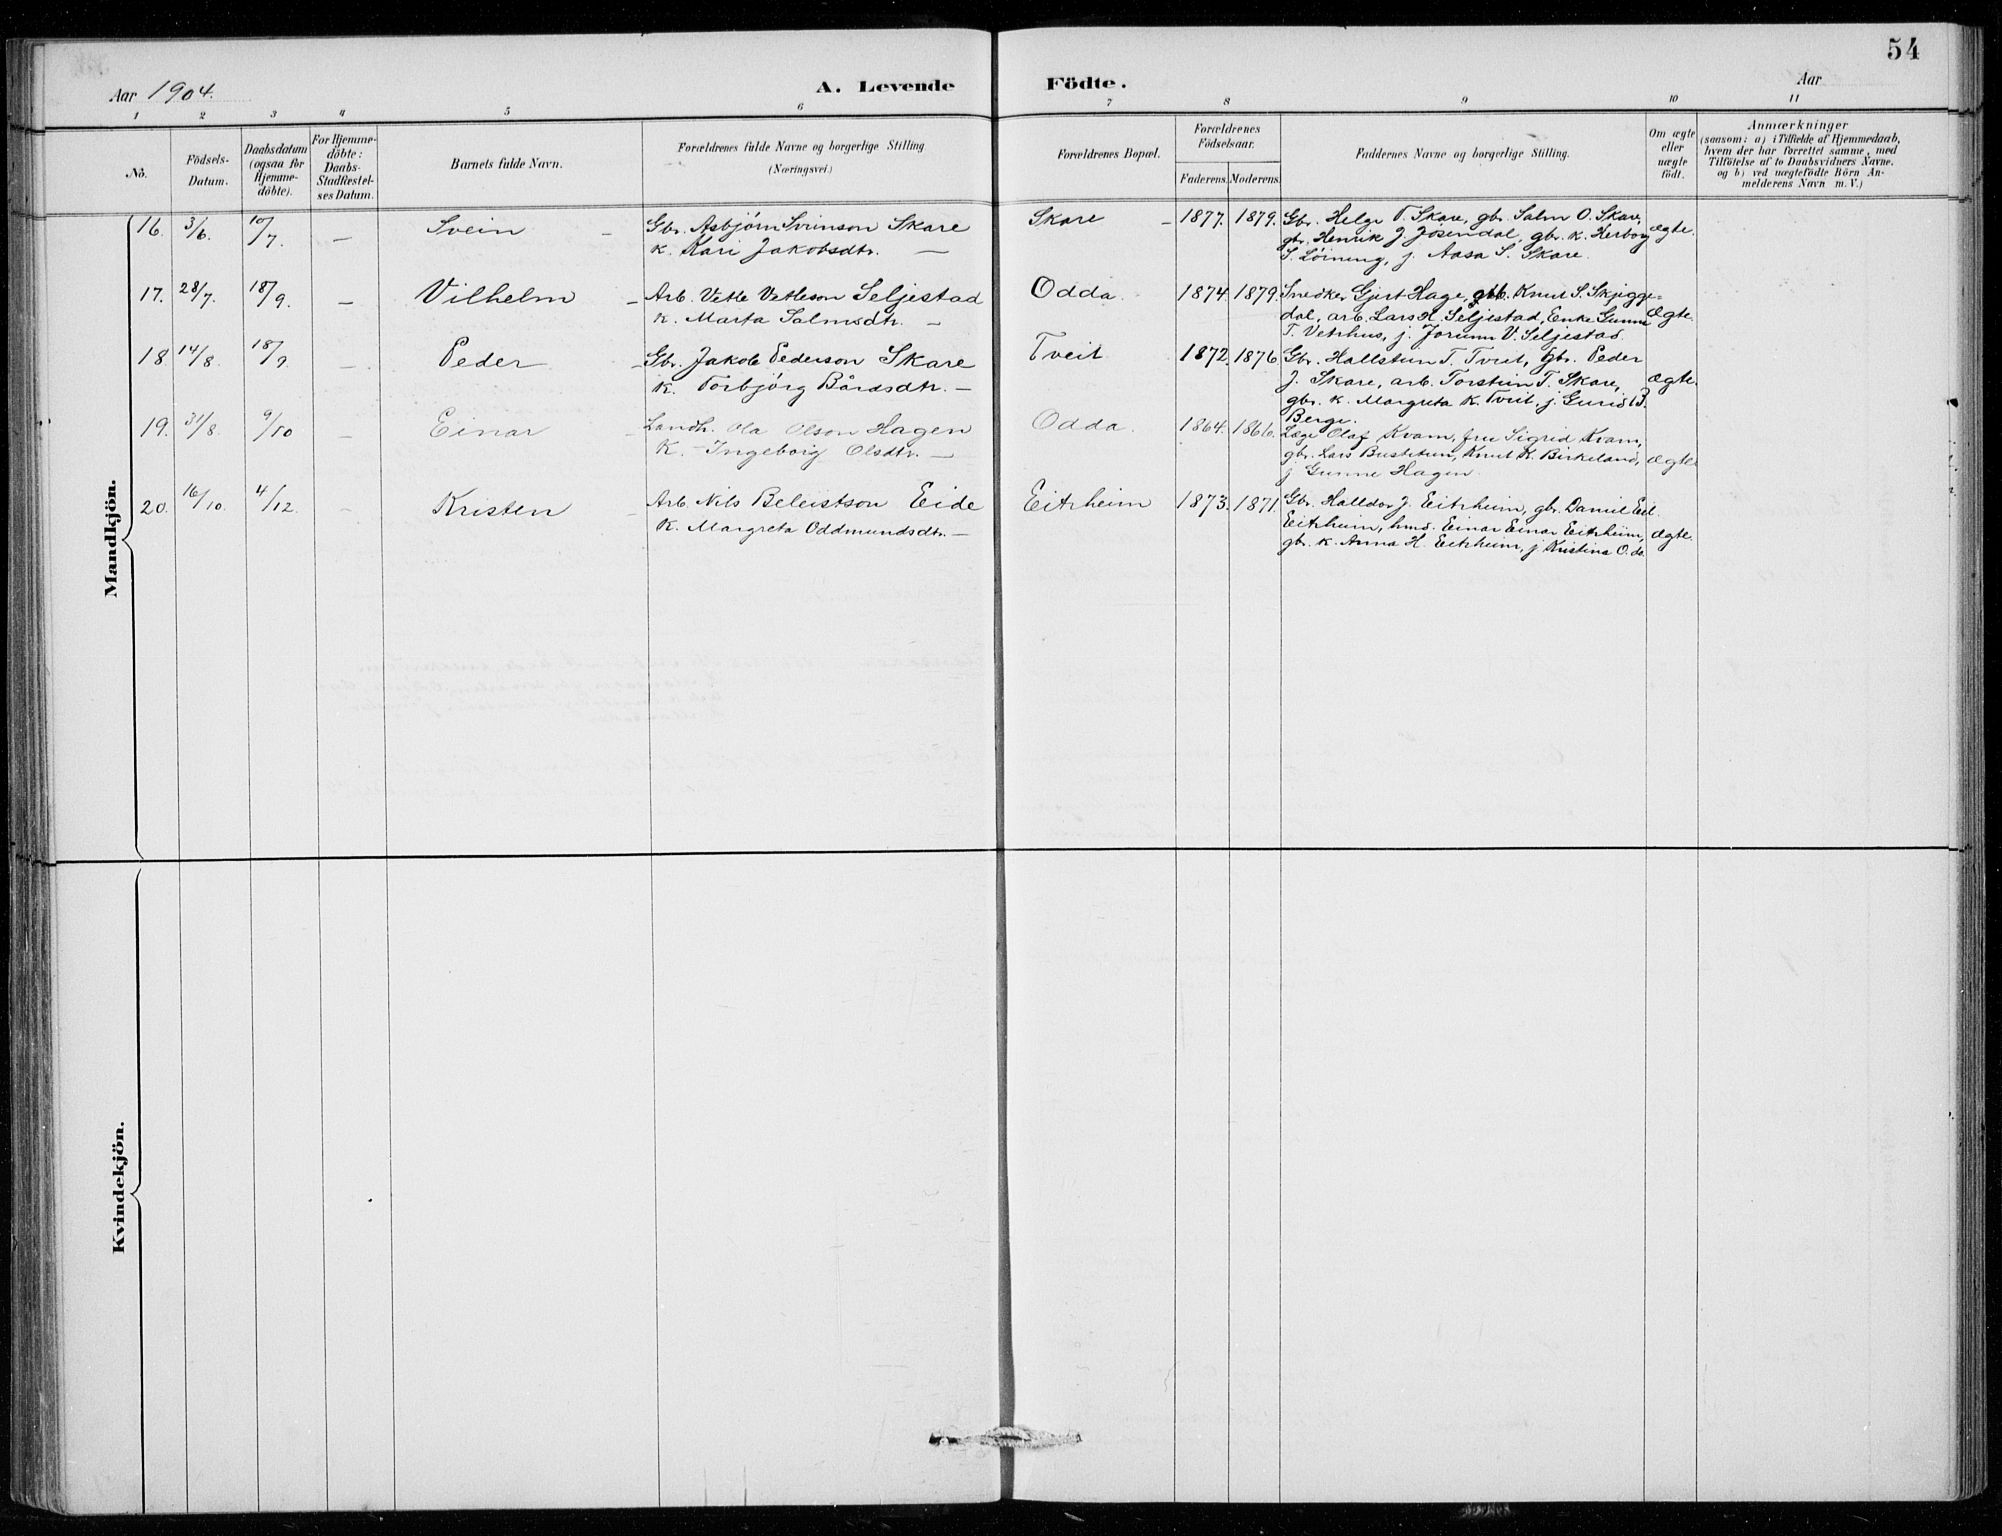 54
Aar 1904.
A. Levende Födte.
Aar
1 2 3 4 5 6 7 8 9 10 11
No.
Födsels-Datum.
Daabsdatum (ogsaa for Hjemme-döbte).
For Hjemme-döbte: Daabs-Stadfæstel-ses Datum.
Barnets fulde Navn.
Forældrenes fulde Navne og borgerlige Stilling
(Næringsvei.)
Forældrenes Bopæl.
Forældrenes Födselsaar.
Faderens. Moderens.
Faddernes Navne og borgerlige Stilling.
Om ægte eller uægte födt.
Anmærkninger
(saasom: a) i Tilfælde af Hjemmedaab,
hvem der har forrettet samme, med
Tilföielse af to Daabsvidners Navne.
og b) ved uægtefödte Börn An-
melderens Navn m. V.)
Mandkjön.
16. 3/6. 10/7. — Svein — Gbr. Asbjörn Sveinson Skare
k. Kari Jakobsdtr. —
Skare — 1877. 1879.
Gbr. Helge T. Skare, gbr. Salm O. Skare,
gbr. Henrik J. Jösendal, gbr. k. Herborg
S. Löining, j. Aasa S. Skare.
ægte.
17. 28/7. 18/9. — Vilhelm — Arb. Vetle Vetleson Seljestad
k. Marta Salmsdtr. —
Odda. 1874. 1879.
Snedker Gjert Hage, gbr. Knut S. Skjegge-
dal, arb. Lars H. Seljestad, Enke Gunna
T. Vetrhus, j. Jorunn V. Seljestad.
Ægte.
18 14/8. 18/9. — Peder — Gbr. Jakob Pederson Skare
k. Torbjörg Bårdsdtr. —
Tveit 1872. 1876
Gbr. Hallstein T. Tveit, Gbr. Peder
J. Skare, arb. Torstein T. Skare,
gbr. k. Margreta K. Tveit, j. Gurid B.
Berge.
Ægte.
19. 31/8. 9/10 — Einar — Landh. Ola Olson Hagen
K. Ingeborg Olsdtr. —
Odda. 1864. 1866.
Læge Olaf Kvam, fru Sigrid Kvam,
gbr. Lars Bustetun, Knut K. Birkeland,
j Gunne Hagen.
Ægte
20. 16/10. 4/12. — Kristen — Arb. Nils Beleistson Eide
K. Margreta Oddmundsdtr. —
Eitrheim 1873. 1871.
Gbr. Halldor J. Eitrheim, gbr. Daniel Eil.
Eitrheim, hmd. Einar Einar Eitrheim,
gbr. k. Anna H. Eitrheim, j Kristina O. do
Ægte.
Kvindekjön.